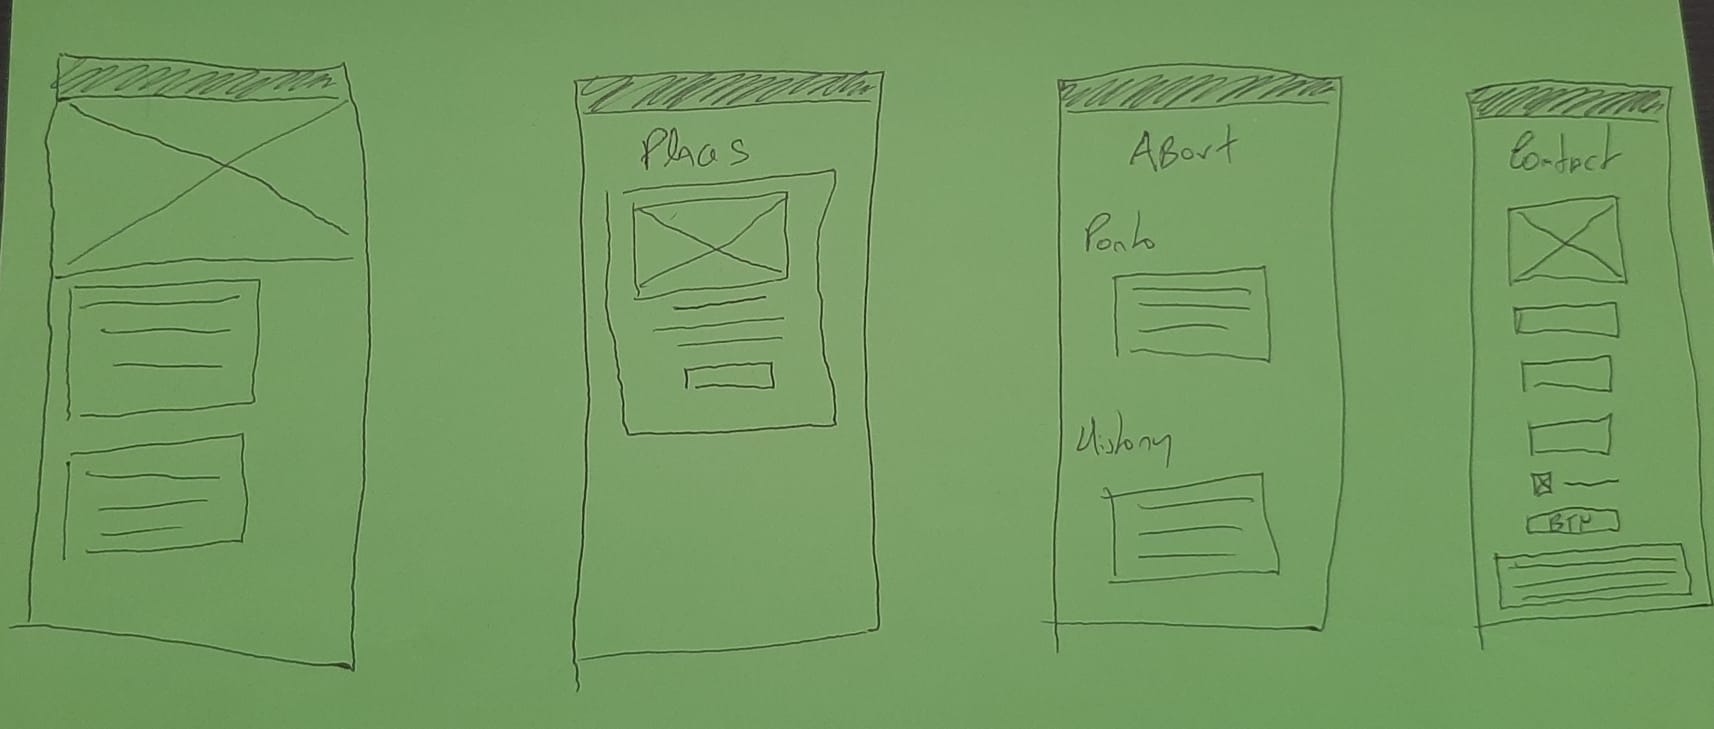 Places
About
Porto
History
Contact
BTN